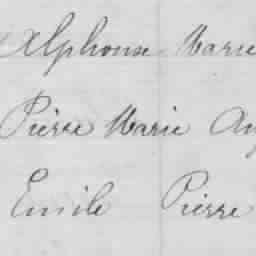 Alphonse Marie
Pierre Marie Au
Emile Pierre